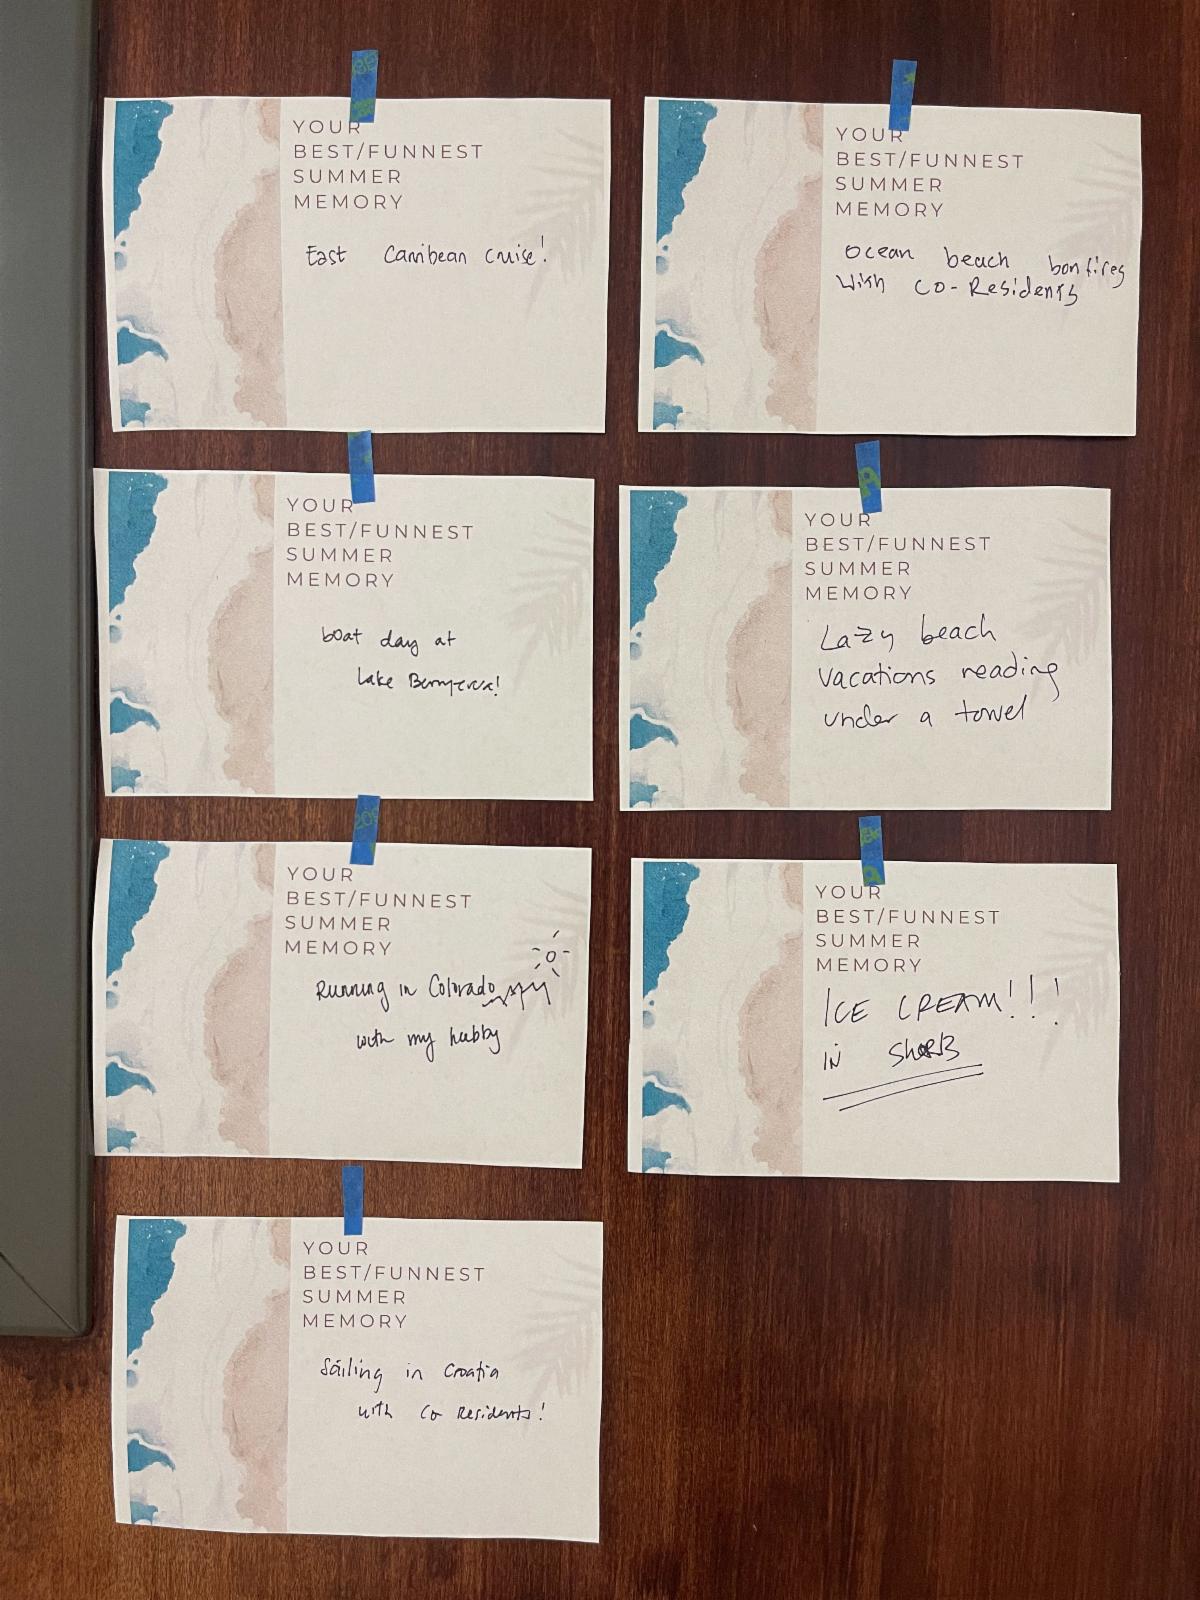 YOUR
BEST/FUNNEST
SUMMER
MEMORY
East Carribean cruise!
YOUR
BEST/FUNNEST
SUMMER
MEMORY
Ocean beach bonfires
With CO-Residents
YOUR
BEST/FUNNEST
SUMMER
MEMORY
boat day at
Lake Berryessa!
YOUR
BEST/FUNNEST
SUMMER
MEMORY
Lazy beach
vacations reading
under a towel
YOUR
BEST/FUNNEST
SUMMER
MEMORY
Running in Colorado
with my hubby
YOUR
BEST/FUNNEST
SUMMER
MEMORY
ICE CREAM!!!
IN
YOUR
BEST/FUNNEST
SUMMER
MEMORY
Sailing in Croatia
with Co Residents!